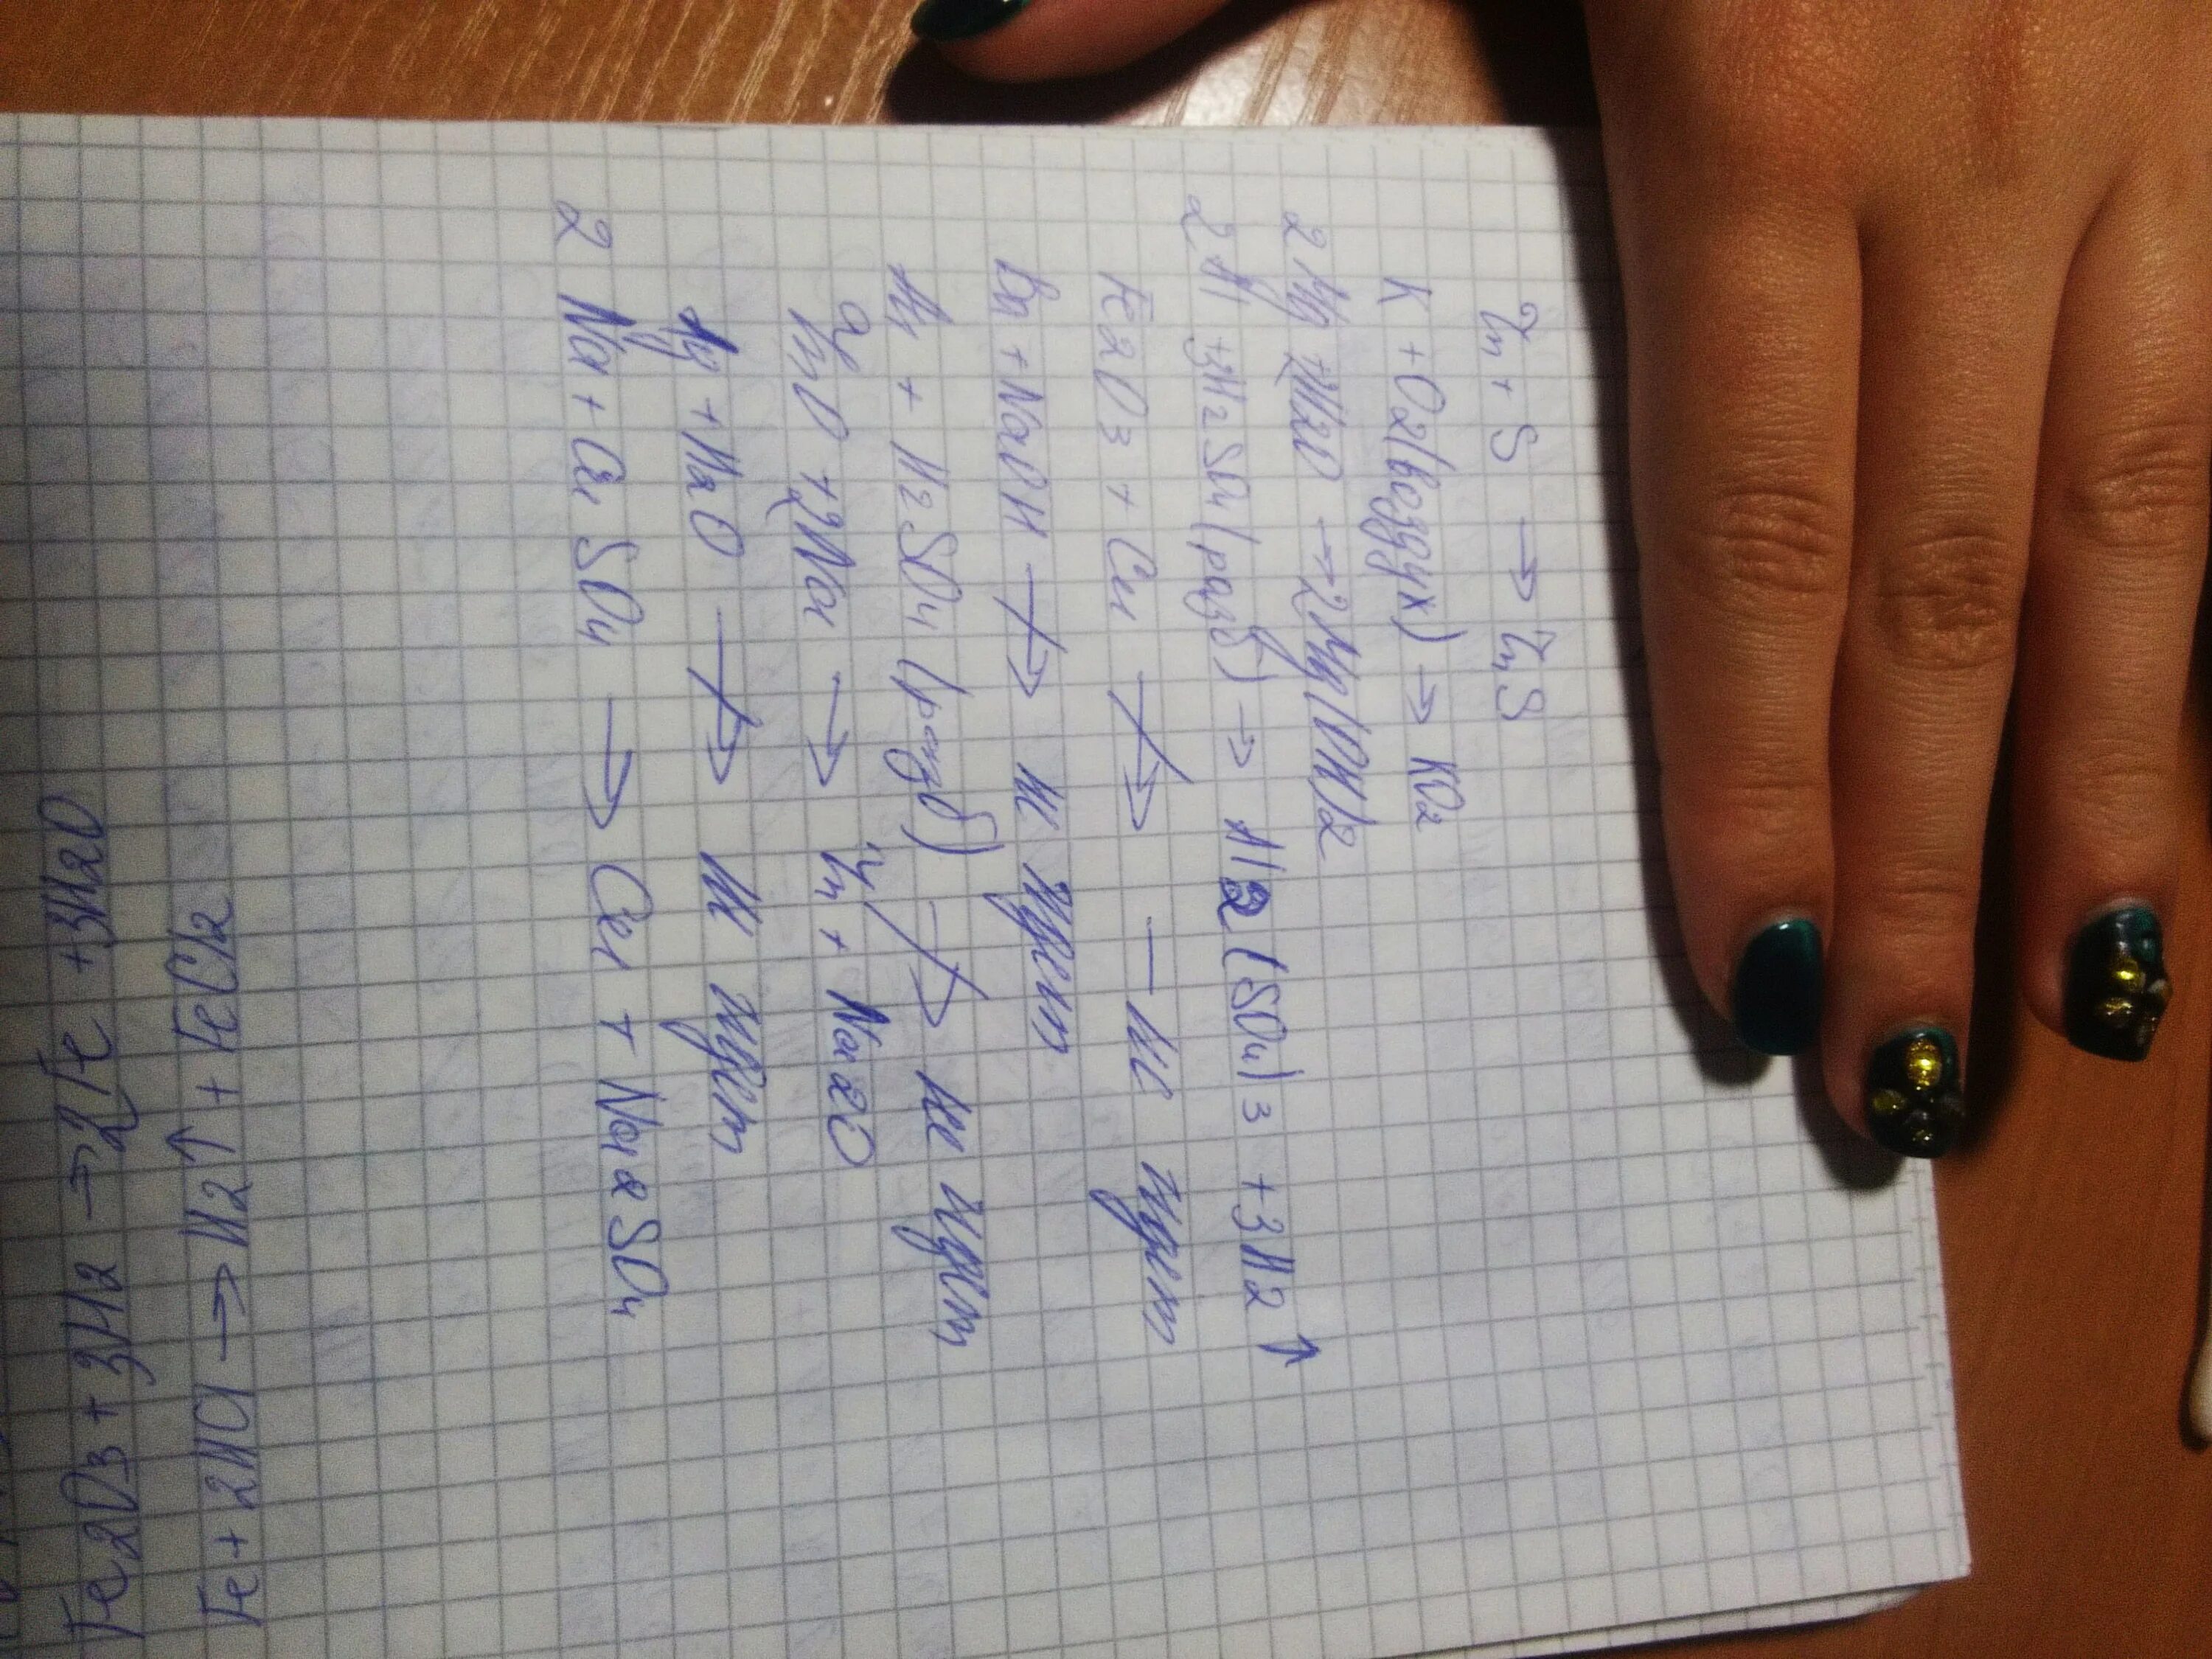 Zn + S → ZnS
K + O2(воздух) → KO2
2Mg + 2H2O → 2Mg(OH)2
2Al + 3H2SO4(разб) → Al2(SO4)3 + 3H2↑
Fe2O3 + Cu ↛ — не идет
+ NaOH ↛ не идет
+ H2SO4 (разб) ↛ не идет
ZnO + 2Na → Zn + Na2O
Ag + H2O ↛ не идет
2Na + CuSO4 → Cu + Na2SO4
Fe + 2HCl → H2↑ + FeCl2
Fe2O3 + 3H2 → 2Fe + 3H2O